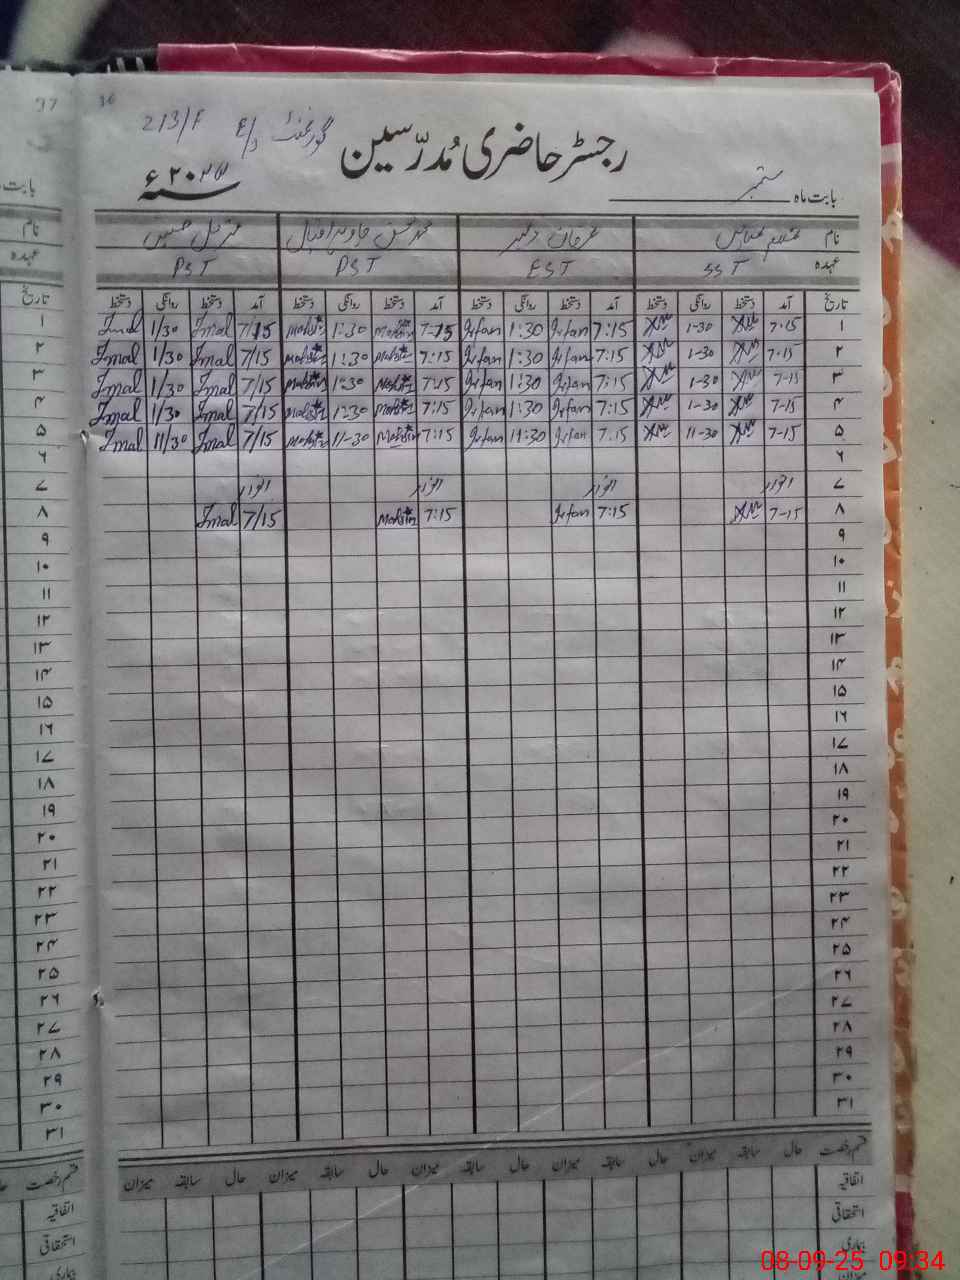 37
36
213/F E/د گورنمنٹ
رجسٹر حاضری مُدرّسین
بابت ماہ ستمبر
سنہ ۲۰۲۵ء
نام غلام عباس عرفان محمد محسن جاوید اقبال مزمل حسین
عہدہ SST EST PST PST
تاریخ آمد دستخط روانگی دستخط آمد دستخط روانگی دستخط آمد دستخط روانگی دستخط آمد دستخط روانگی دستخط
۱ 7-15 1-30 7:15 Irfan 1:30 Irfan 7-15 Mohsin 1:30 Mohsin 7/15 Imal 1/30 Imal
۲ 7-15 1-30 7:15 Irfan 1:30 Irfan 7:15 Mohsin 1:30 Mohsin 7/15 Imal 1/30 Imal
۳ 7-15 1-30 7:15 Irfan 1:30 Irfan 7:15 Mohsin 1:30 Mohsin 7/15 Imal 1/30 Imal
۴ 7-15 1-30 7:15 Irfan 1:30 Irfan 7:15 Mohsin 1:30 Mohsin 7/15 Imal 1/30 Imal
۵ 7-15 11-30 7:15 Irfan 11:30 Irfan 7:15 Mohsin 11-30 Mohsin 7/15 Imal 11/30 Imal
۶
۷ اتوار اتوار اتوار اتوار
۸ 7-15 7:15 Irfan 7:15 Mohsin 7/15 Imal
۹
۱۰
۱۱
۱۲
۱۳
۱۴
۱۵
۱۶
۱۷
۱۸
۱۹
۲۰
۲۱
۲۲
۲۳
۲۴
۲۵
۲۶
۲۷
۲۸
۲۹
۳۰
۳۱
قسم رخصت حال سابقہ میزان حال سابقہ میزان حال سابقہ میزان حال سابقہ میزان
اتفاقیہ
استحقاقی
بیماری
میزان
بابت
نام
عہدہ
تاریخ
۱
۲
۳
۴
۵
۶
۷
۸
۹
۱۰
۱۱
۱۲
۱۳
۱۴
۱۵
۱۶
۱۷
۱۸
۱۹
۲۰
۲۱
۲۲
۲۳
۲۴
۲۵
۲۶
۲۷
۲۸
۲۹
۳۰
۳۱
قسم رخصت
اتفاقیہ
استحقاقی
بیماری
08-09-25 09:34